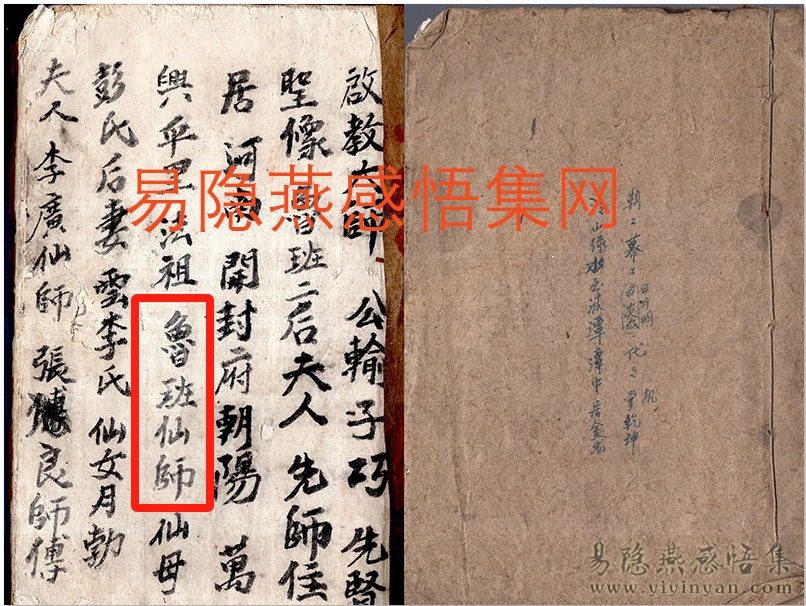 啟教大師 公輸子巧 先賢
聖像 魯班二后夫人 先師住
居 河南開封府朝陽 萬
興平里 法祖 魯班仙師 仙母
彭氏后妻雲李氏 仙女月勃
夫人 李廣仙師 張良師傅
易隐燕感悟集网
朝々暮々
代々掌乾坤
山綠水
潭
易隐燕感悟集
www.yiyinyan.com